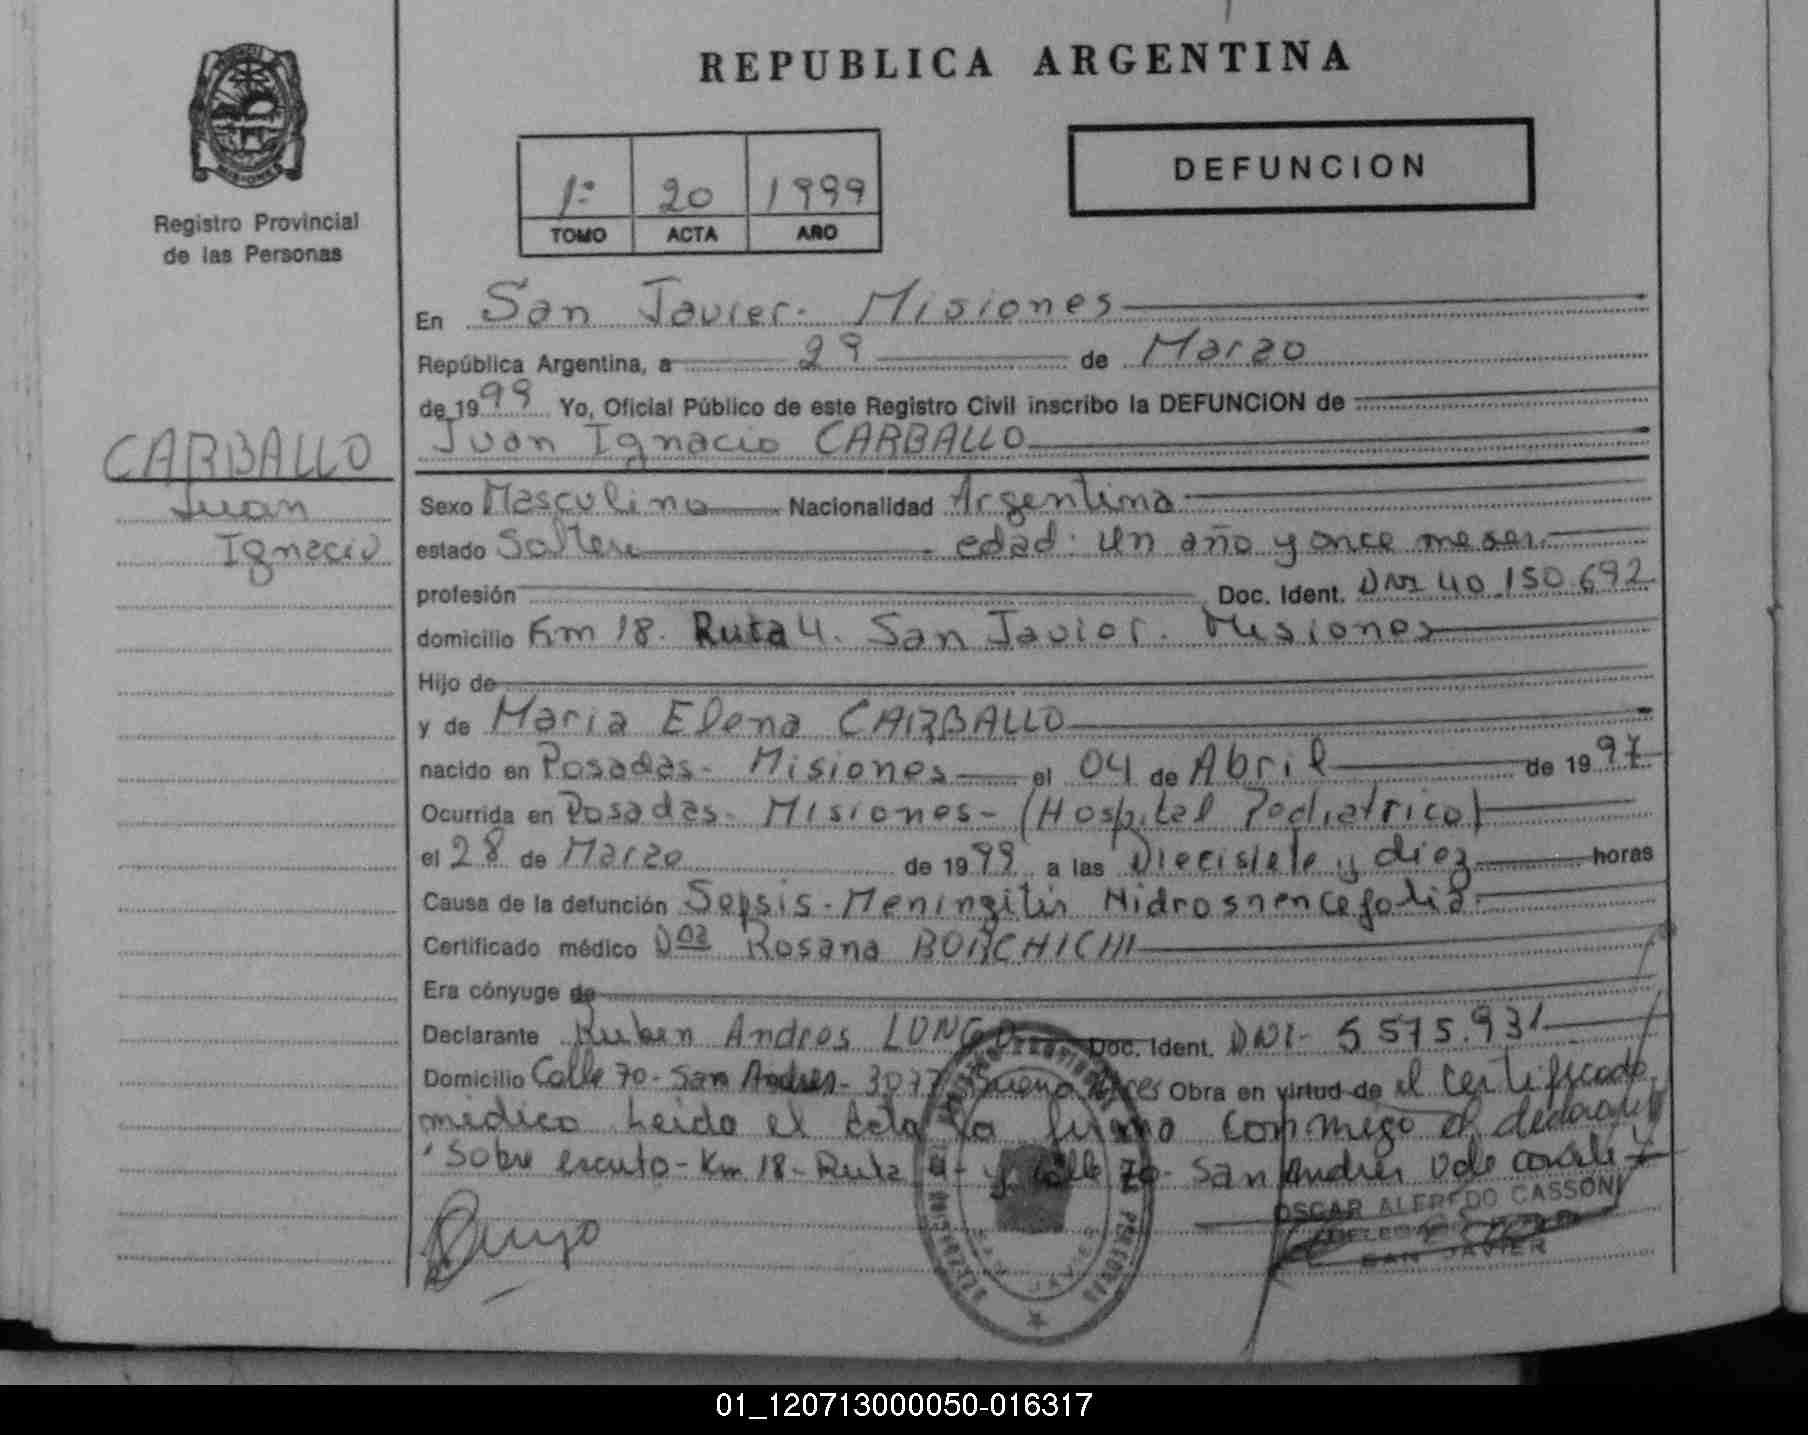 REPUBLICA ARGENTINA
DEFUNCION
1º 20 1999
TOMO ACTA AÑO
Registro Provincial
de las Personas
CARBALLO
Juan
Ignacio
En San Javier. Misiones
República Argentina, a 29 de Marzo
de 1999 Yo, Oficial Público de este Registro Civil inscribo la DEFUNCION de
Juan Ignacio CARBALLO
Sexo Masculino Nacionalidad Argentina
estado Soltero edad: un año y once meses
profesión Doc. Ident. DNI 40.150.692
domicilio Km 18. Ruta 4. San Javier. Misiones
Hijo de
y de Maria Elena CARBALLO
nacido en Posadas- Misiones el 04 de Abril de 1997
Ocurrida en Posadas- Misiones- (Hospital Pediatrico)
el 28 de Marzo de 1999 a las Diecisiete y diez horas
Causa de la defunción Sepsis- Meningitis
Certificado médico Dra Rosana
Era cónyuge de
Declarante Ruben Andres LONGO Doc. Ident. DNI- 5575.931
Domicilio Calle 70- San Andres- 3077 Buenos Aires Obra en virtud de el certificado
médico Leido el Acta la firma conmigo el declarante
Sobre escrito- Km 18- Ruta 4- y Calle 70- San Andres Vale
OSCAR ALFREDO CASSONI
SAN JAVIER
01_120713000050-016317